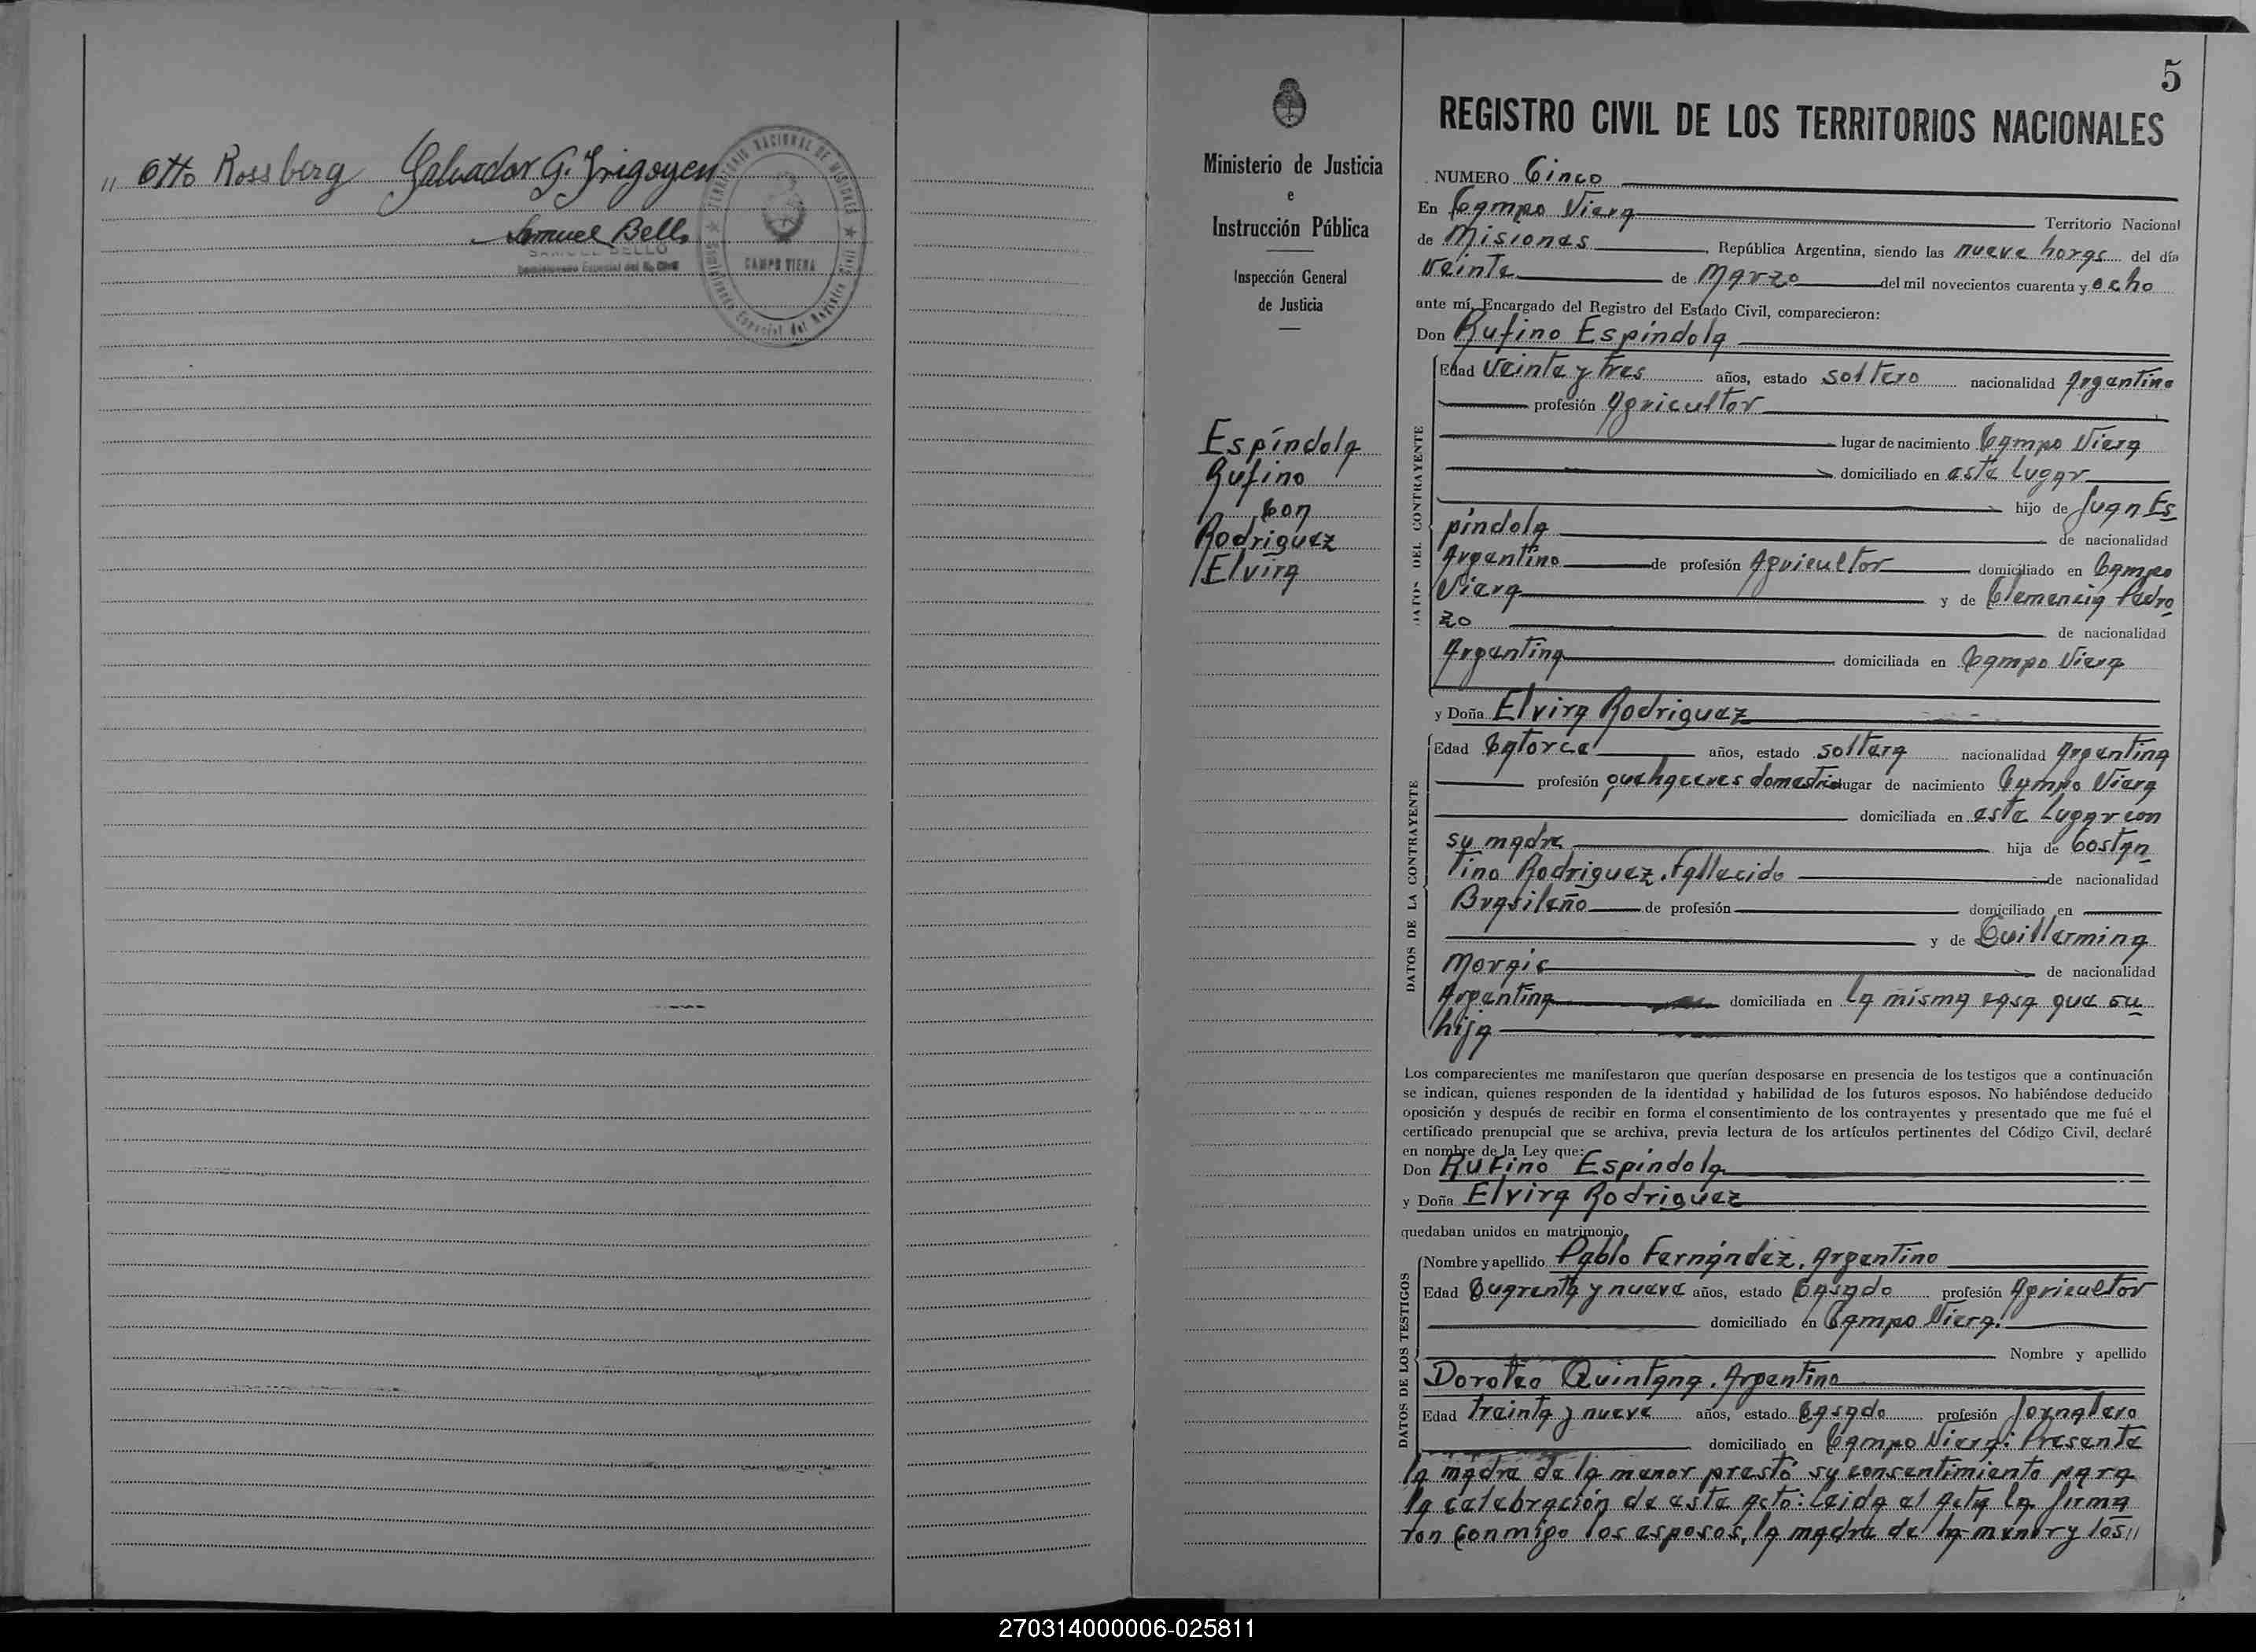 " Otto Rossberg Salvador G. Irigoyen
Samuel Bello
SAMUEL BELLO
Comisionado Especial del R. Civil
TERRITORIO NACIONAL DE MISIONES
CAMPO VIERA
Comisionado Especial del Registro Civil
Ministerio de Justicia
e
Instrucción Pública
Inspección General
de Justicia
Espíndola
Rufino
con
Rodriguez
Elvira
5
REGISTRO CIVIL DE LOS TERRITORIOS NACIONALES
NUMERO Cinco
En Campo Viera Territorio Nacional
de Misiones República Argentina, siendo las nueve horas del día
Veinte de Marzo del mil novecientos cuarenta y ocho
ante mí, Encargado del Registro del Estado Civil, comparecieron:
Don Rufino Espíndola
DATOS DEL CONTRAYENTE
Edad Veinte y tres años, estado soltero nacionalidad Argentino
profesión Agricultor
lugar de nacimiento Campo Viera
domiciliado en este lugar
hijo de Juan Es
píndola de nacionalidad
Argentino de profesión Agricultor domiciliado en Campo
Viera y de Clemencia Pedro
zo de nacionalidad
Argentina domiciliada en Campo Viera
y Doña Elvira Rodriguez
DATOS DE LA CONTRAYENTE
Edad Catorce años, estado soltera nacionalidad Argentina
profesión quehaceres domestico lugar de nacimiento Campo Viera
domiciliada en este Lugar con
su madre hija de Costan
tino Rodriguez. Fallecido de nacionalidad
Brasileño de profesión domiciliado en
y de Guillermina
Morais de nacionalidad
Argentina domiciliada en la misma casa que su
hija
Los comparecientes me manifestaron que querían desposarse en presencia de los testigos que a continuación
se indican, quienes responden de la identidad y habilidad de los futuros esposos. No habiéndose deducido
oposición y después de recibir en forma el consentimiento de los contrayentes y presentado que me fué el
certificado prenupcial que se archiva, previa lectura de los artículos pertinentes del Código Civil, declaré
en nombre de la Ley que:
Don Rufino Espíndola
y Doña Elvira Rodriguez
quedaban unidos en matrimonio.
DATOS DE LOS TESTIGOS
Nombre y apellido Pablo Fernández, Argentino
Edad Cuarenta y nueve años, estado Casado profesión Agricultor
domiciliado en Campo Viera.
Nombre y apellido
Doroteo Quintana. Argentino
Edad treinta y nueve años, estado Casado profesión Jornalero
domiciliado en Campo Viera: Presente
la madre de la menor prestó su consentimiento para
la celebración de este acto: Leida el Acta la firma
ron conmigo los esposos, la madre de la menor y los "
270314000006-025811